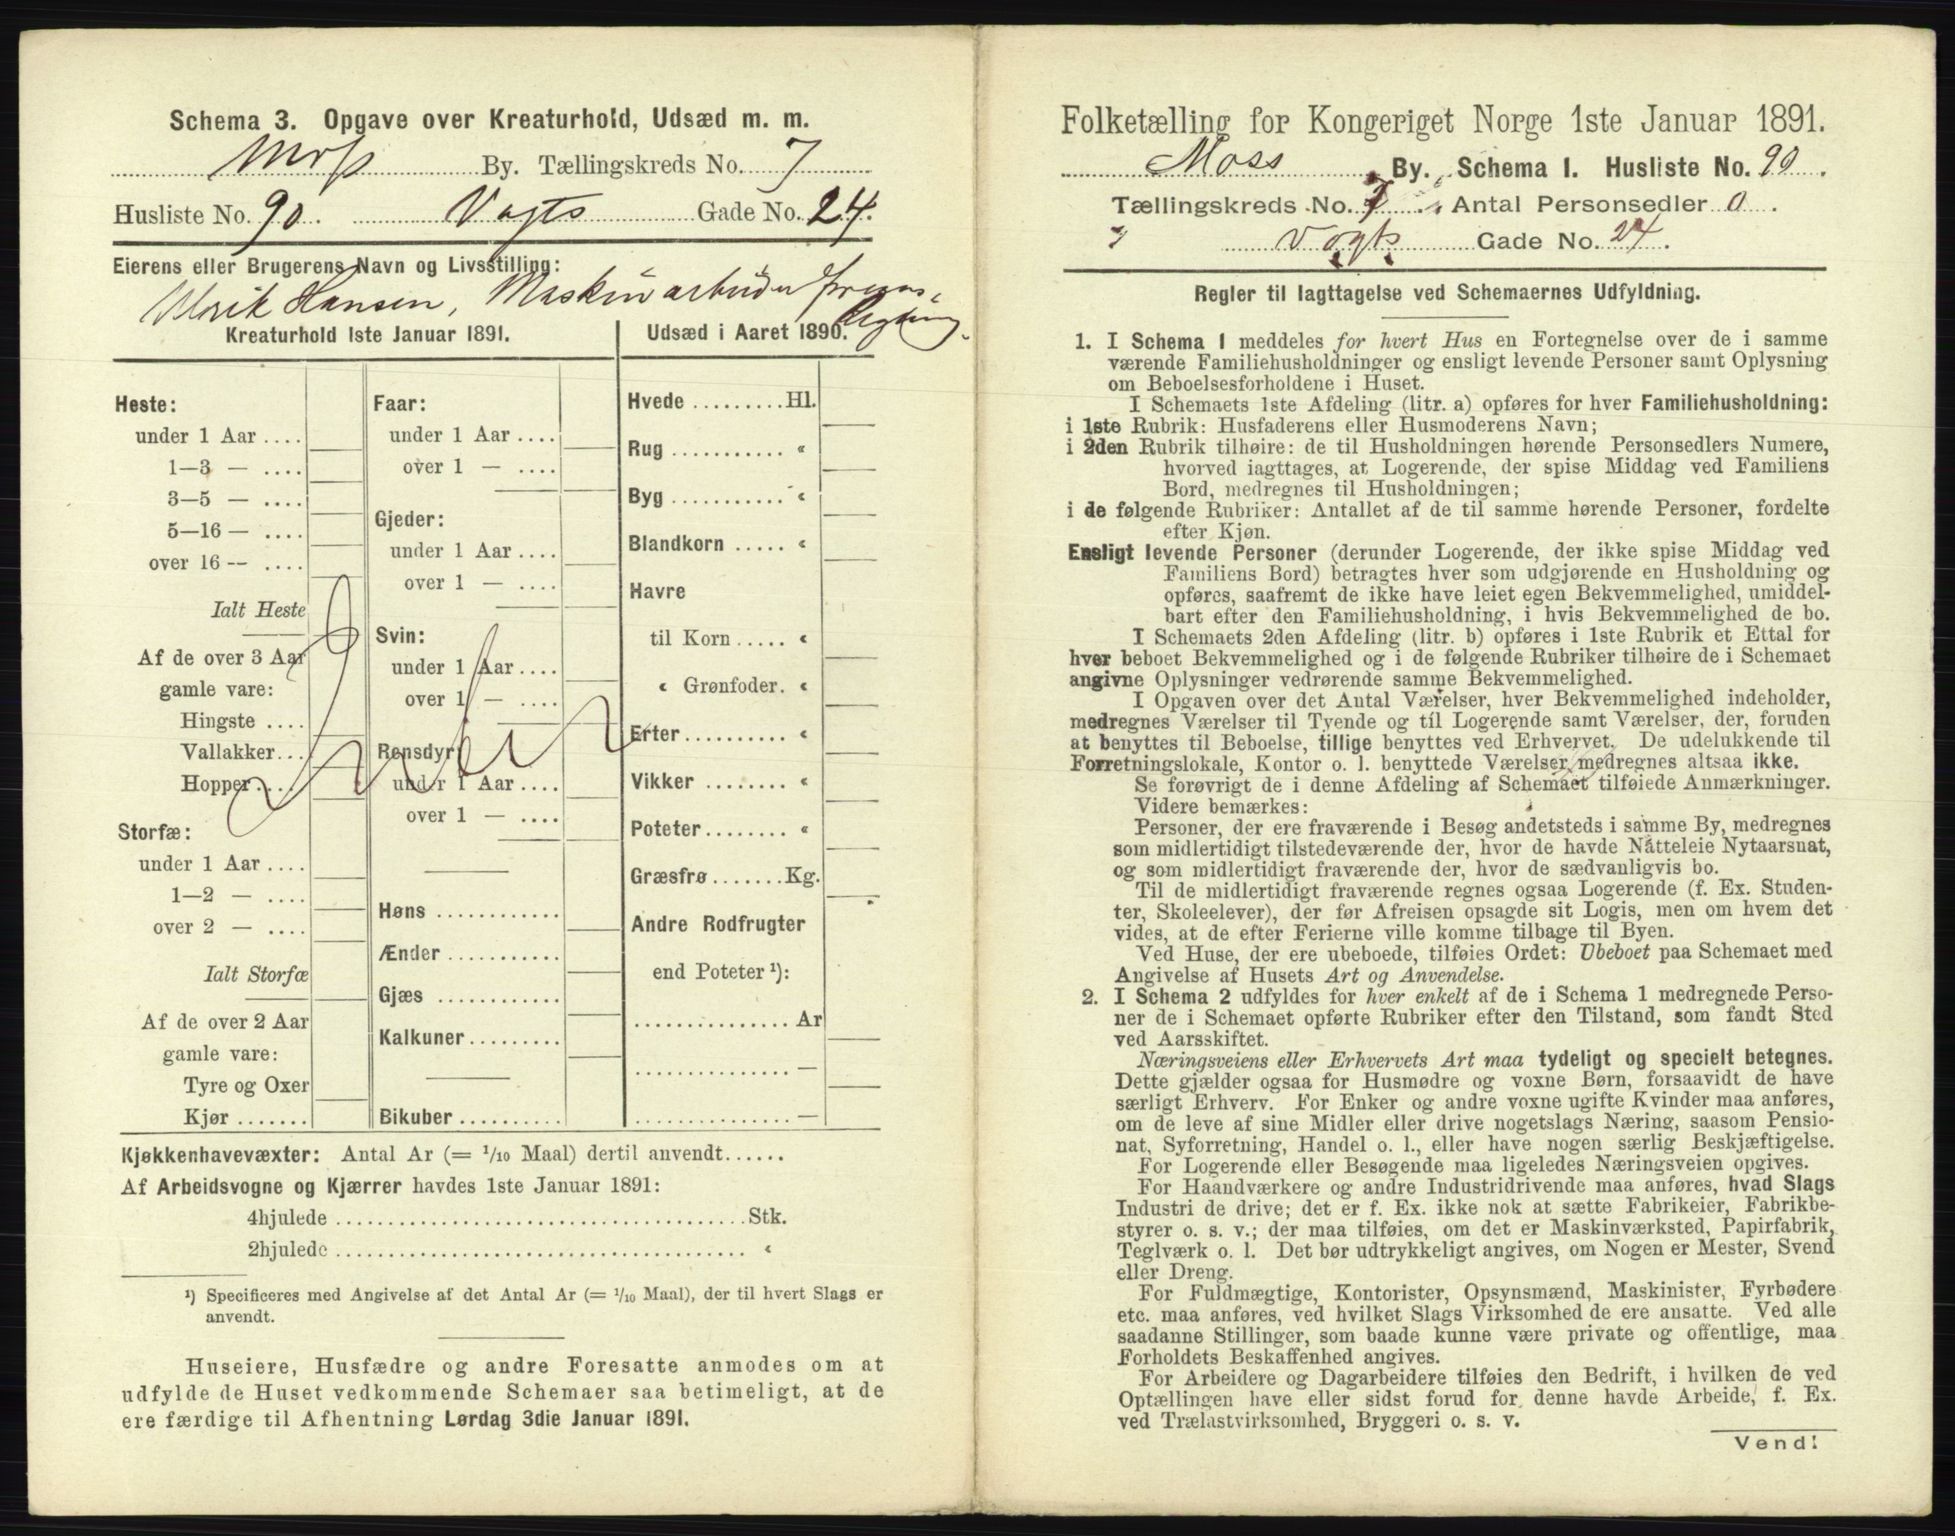 Schema 3. Opgave over Kreaturhold, Udsæd m. m.
Moss By. Tællingskreds No. 7
Husliste No. 90 Vogts Gade No. 24.
Eierens eller Brugerens Navn og Livsstilling:
Ulrik Hansen, Maskinarbeider
Kreaturhold 1ste Januar 1891.
Heste:
under 1 Aar ....
1—3 — ....
3—5 — ....
5—16 — ....
over 16 — ....
Ialt Heste
Af de over 3 Aar
gamle vare:
Hingste ....
Vallakker....
Hopper....
Storfæ:
under 1 Aar ....
1—2 — ....
over 2 — ....
Ialt Storfæ
Af de over 2 Aar
gamle vare:
Tyre og Oxer
Kjør .......
Faar:
under 1 Aar ....
over 1 — ....
Gjeder:
under 1 Aar ....
over 1 — ....
Svin:
under 1 Aar....
over 1 — ....
Rensdyr:
under 1 Aar ....
over 1 — ....
Høns ............
Ænder ...........
Gjæs ............
Kalkuner.........
Bikuber ..........
Udsæd i Aaret 1890.
Hvede .........Hl.
Rug ........... «
Byg ........... «
Blandkorn ..... «
Havre
til Korn ..... «
« Grønfoder. «
Erter.......... «
Vikker ........ «
Poteter........ «
Græsfrø .......Kg.
Andre Rodfrugter
end Poteter ¹):
............... Ar
............... —
............... —
Kjøkkenhavevæxter: Antal Ar (= 1/10 Maal) dertil anvendt......
Af Arbeidsvogne og Kjærrer havdes 1ste Januar 1891:
4hjulede ......................................Stk.
2hjulede ...................................... «
¹) Specificeres med Angivelse af det Antal Ar (= 1/10 Maal), der til hvert Slags er
anvendt.
Huseiere, Husfædre og andre Foresatte anmodes om at
udfylde de Huset vedkommende Schemaer saa betimeligt, at de
ere færdige til Afhentning Lørdag 3die Januar 1891.
Folketælling for Kongeriget Norge 1ste Januar 1891.
Moss By. Schema 1. Husliste No. 90.
Tællingskreds No. 7 Antal Personsedler 0.
Vogts Gade No. 24.
Regler til Iagttagelse ved Schemaernes Udfyldning.
1. I Schema 1 meddeles for hvert Hus en Fortegnelse over de i samme
værende Familiehusholdninger og ensligt levende Personer samt Oplysning
om Beboelsesforholdene i Huset.
I Schemaets 1ste Afdeling (litr. a) opføres for hver Familiehusholdning:
i 1ste Rubrik: Husfaderens eller Husmoderens Navn;
i 2den Rubrik tilhøire: de til Husholdningen hørende Personsedlers Numere,
hvorved iagttages, at Logerende, der spise Middag ved Familiens
Bord, medregnes til Husholdningen;
i de følgende Rubriker: Antallet af de til samme hørende Personer, fordelte
efter Kjøn.
Ensligt levende Personer (derunder Logerende, der ikke spise Middag ved
Familiens Bord) betragtes hver som udgjørende en Husholdning og
opføres, saafremt de ikke have leiet egen Bekvemmelighed, umiddel-
bart efter den Familiehusholdning, i hvis Bekvemmelighed de bo.
I Schemaets 2den Afdeling (litr. b) opføres i 1ste Rubrik et Ettal for
hver beboet Bekvemmelighed og i de følgende Rubriker tilhøire de i Schemaet
angivne Oplysninger vedrørende samme Bekvemmelighed.
I Opgaven over det Antal Værelser, hver Bekvemmelighed indeholder,
medregnes Værelser til Tyende og til Logerende samt Værelser, der, foruden
at benyttes til Beboelse, tillige benyttes ved Erhvervet. De udelukkende til
Forretningslokale, Kontor o. l. benyttede Værelser medregnes altsaa ikke.
Se forøvrigt de i denne Afdeling af Schemaet tilføiede Anmærkninger.
Videre bemærkes:
Personer, der ere fraværende i Besøg andetsteds i samme By, medregnes
som midlertidigt tilstedeværende der, hvor de havde Natteleie Nytaarsnat,
og som midlertidigt fraværende der, hvor de sædvanligvis bo.
Til de midlertidigt fraværende regnes ogsaa Logerende (f. Ex. Studen-
ter, Skoleelever), der før Afreisen opsagde sit Logis, men om hvem det
vides, at de efter Ferierne ville komme tilbage til Byen.
Ved Huse, der ere ubeboede, tilføies Ordet: Ubeboet paa Schemaet med
Angivelse af Husets Art og Anvendelse.
2. I Schema 2 udfyldes for hver enkelt af de i Schema 1 medregnede Perso-
ner de i Schemaet opførte Rubriker efter den Tilstand, som fandt Sted
ved Aarsskiftet.
Næringsveiens eller Erhvervets Art maa tydeligt og specielt betegnes.
Dette gjælder ogsaa for Husmødre og voxne Børn, forsaavidt de have
særligt Erhverv. For Enker og andre voxne ugifte Kvinder maa anføres,
om de leve af sine Midler eller drive nogetslags Næring, saasom Pensio-
nat, Syforretning, Handel o. l., eller have nogen særlig Beskjæftigelse.
For Logerende eller Besøgende maa ligeledes Næringsveien opgives.
For Haandværkere og andre Industridrivende maa anføres, hvad Slags
Industri de drive; det er f. Ex. ikke nok at sætte Fabrikeier, Fabrikbe-
styrer o. s. v.; der maa tilføies, om det er Maskinværksted, Papirfabrik,
Teglværk o. l. Det bør udtrykkeligt angives, om Nogen er Mester, Svend
eller Dreng.
For Fuldmægtige, Kontorister, Opsynsmænd, Maskinister, Fyrbødere
etc. maa anføres, ved hvilket Slags Virksomhed de ere ansatte. Ved alle
saadanne Stillinger, som baade kunne være private og offentlige, maa
Forholdets Beskaffenhed angives.
For Arbeidere og Dagarbeidere tilføies den Bedrift, i hvilken de ved
Optællingen have eller sidst forud for denne havde Arbeide, f. Ex.
ved Trælastvirksomhed, Bryggeri o. s. v.
Vend!